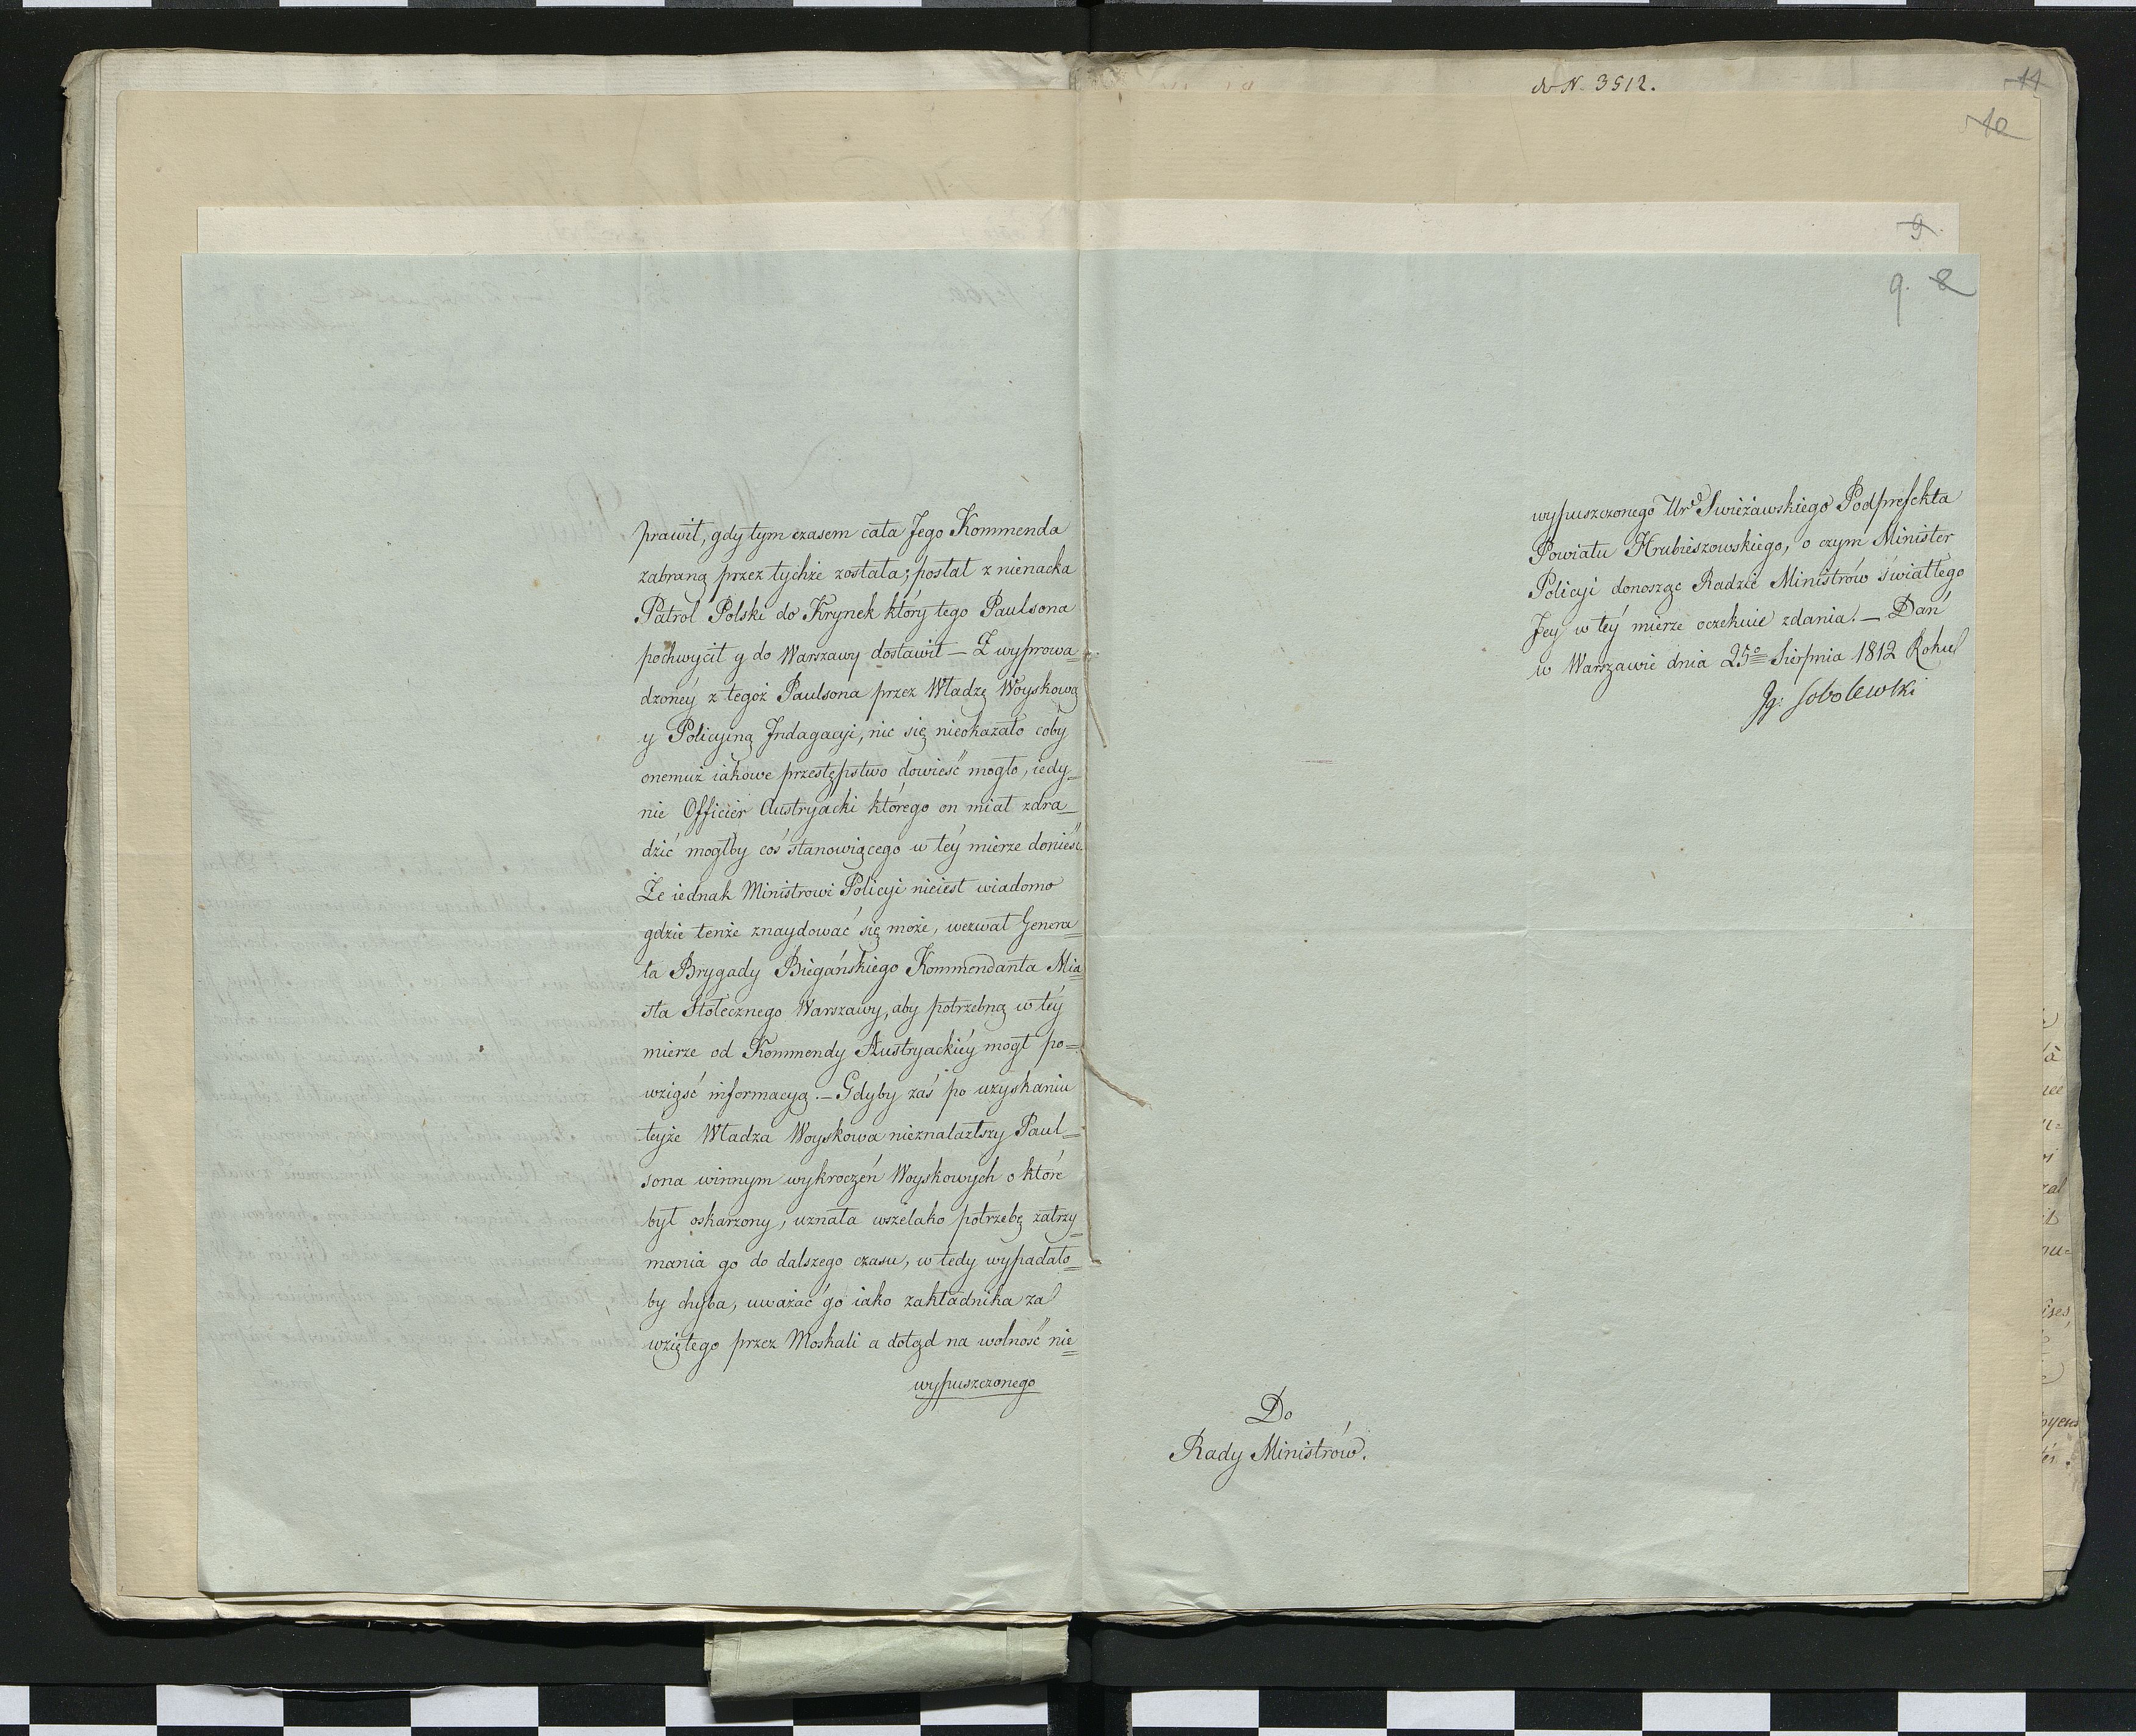 do N. 3512.
11
10
9.
9. 8
prawił, gdy tym czasem cała Jego Kommenda
zabraną przez tychże została; posłał z nienacka
Patrol Polski do Krynek który tego Paulsona
pochwycił y do Warszawy dostawił — Z wyprowa=
dzoney z tegoż Paulsona przez Władzę Woyskową
y Policyiną Jndagacyi, nic się nieokazało coby
onemuż iakowe przestępstwo dowieść mogło, iedy=
nie Officier Austryacki którego on miał zdra=
dzić mogłby coś stanowiącego w tey mierze donieść.
Że iednak Ministrowi Policyi nieiest wiadomo
gdzie tenże znaydować się może, wezwał Genera=
ła Brygady Biegańskiego Kommendanta Mia=
sta Stołecznego Warszawy, aby potrzebną w tey
mierze od Kommendy Austryackiéy mogł po=
wziąść informacyą. — Gdyby zaś po uzyskaniu
teyże Władza Woyskowa nieznalazłszy Paul=
sona winnym wykroczeń Woyskowych o które
był oskarżony, uznała wszelako potrzebę zatrzy=
mania go do dalszego czasu, w tedy wypadało=
by chyba, uważać go iako zakładnika za
wziętego przez Moskali a dotąd na wolność nie=
wypuszczonego
wypuszczonego Uro Swieżawskiego Podprefekta
Powiatu Hrubieszowskiego, o czym Minister
Policyi donosząc Radzie Ministrów światłego
Jey w tey mierze oczekuie zdania. — Dań
w Warszawie dnia 25o Sierpnia 1812 Roku
Jg: Sobolewski
Do
Rady Ministrów.